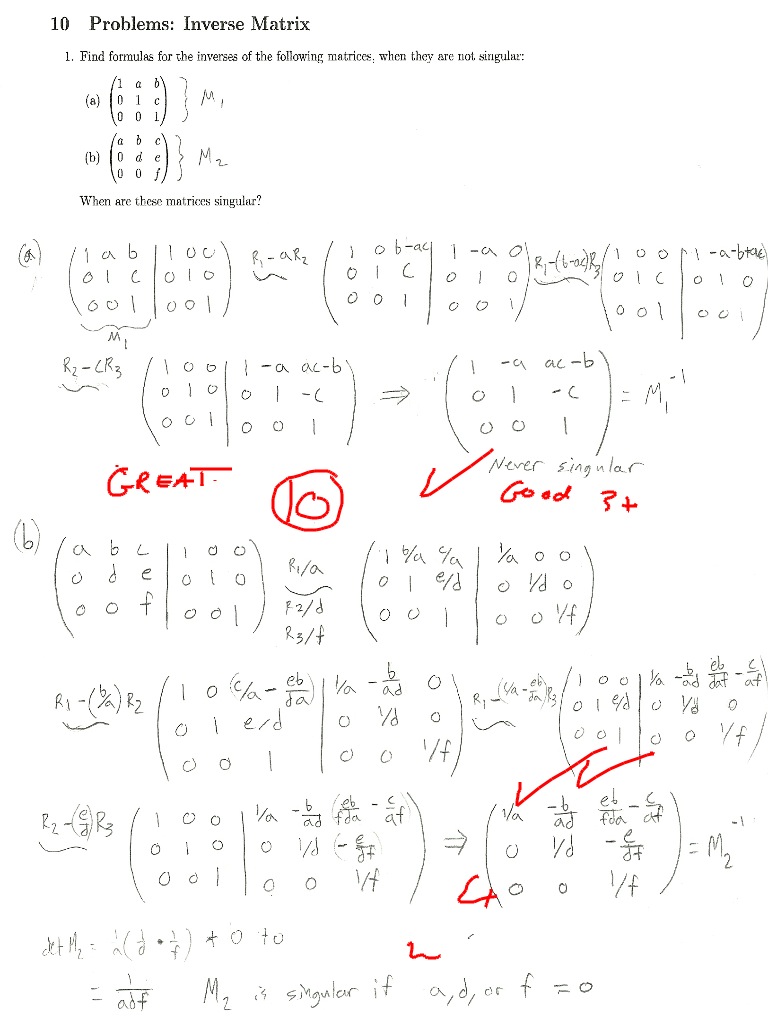 10 Problems: Inverse Matrix
1. Find formulas for the inverses of the following matrices, when they are not singular:
(a) (1 a b; 0 1 c; 0 0 1) } M₁
(b) (a b c; 0 d e; 0 0 f) } M₂
When are these matrices singular?
(a) (1 a b | 1 0 0; 0 1 c | 0 1 0; 0 0 1 | 0 0 1) R₁-aR₂ (1 0 b-ac | 1 -a 0; 0 1 c | 0 1 0; 0 0 1 | 0 0 1) R₁-(b-ac)R₃ (1 0 0 | 1 -a -b+ac; 0 1 c | 0 1 0; 0 0 1 | 0 0 1)
M₁
R₂-cR₃ (1 0 0 | 1 -a ac-b; 0 1 0 | 0 1 -c; 0 0 1 | 0 0 1) ⇒ (1 -a ac-b; 0 1 -c; 0 0 1) = M₁⁻¹
Never singular
GREAT. 10 Good 3+
(b) (a b c | 1 0 0; 0 d e | 0 1 0; 0 0 f | 0 0 1) R₁/a R2/d R3/f (1 b/a c/a | 1/a 0 0; 0 1 e/d | 0 1/d 0; 0 0 1 | 0 0 1/f)
R₁-(b/a)R₂ (1 0 (c/a - eb/da) | 1/a -b/ad 0; 0 1 e/d | 0 1/d 0; 0 0 1 | 0 0 1/f) R₁-(c/a-eb/da)R₃ (1 0 0 | 1/a -b/ad eb/daf - c/af; 0 1 e/d | 0 1/d 0; 0 0 1 | 0 0 1/f)
R₂-(e/d)R₃ (1 0 0 | 1/a -b/ad (eb/fda - c/af); 0 1 0 | 0 1/d (-e/df); 0 0 1 | 0 0 1/f) ⇒ (1/a -b/ad eb/fda - c/af; 0 1/d -e/df; 0 0 1/f) = M₂⁻¹
det M₂ = 1/a (1/d • 1/f) + 0 + 0
= 1/adf M₂ is singular if a, d, or f = 0